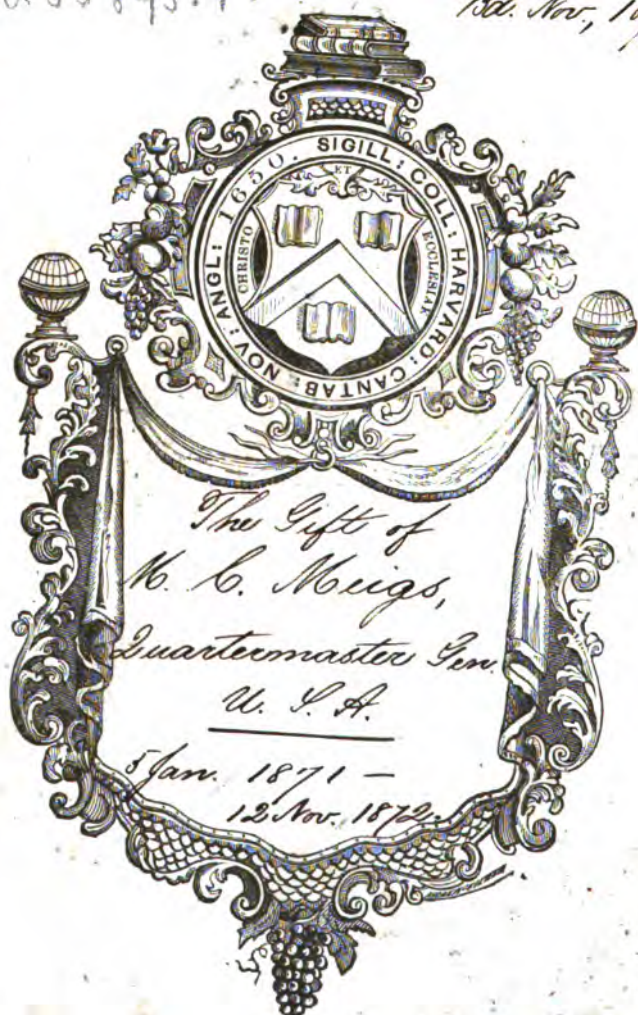 Bd. Nov.,
SIGILL: COLL: HARVARD: CANTAB: NOV: ANGL: 1650.
ET
CHRISTO
ECCLESIAE
The Gift of
M. C. Meigs,
Quartermaster Gen.
U. S. A.
5 Jan. 1871 –
12 Nov. 1872.